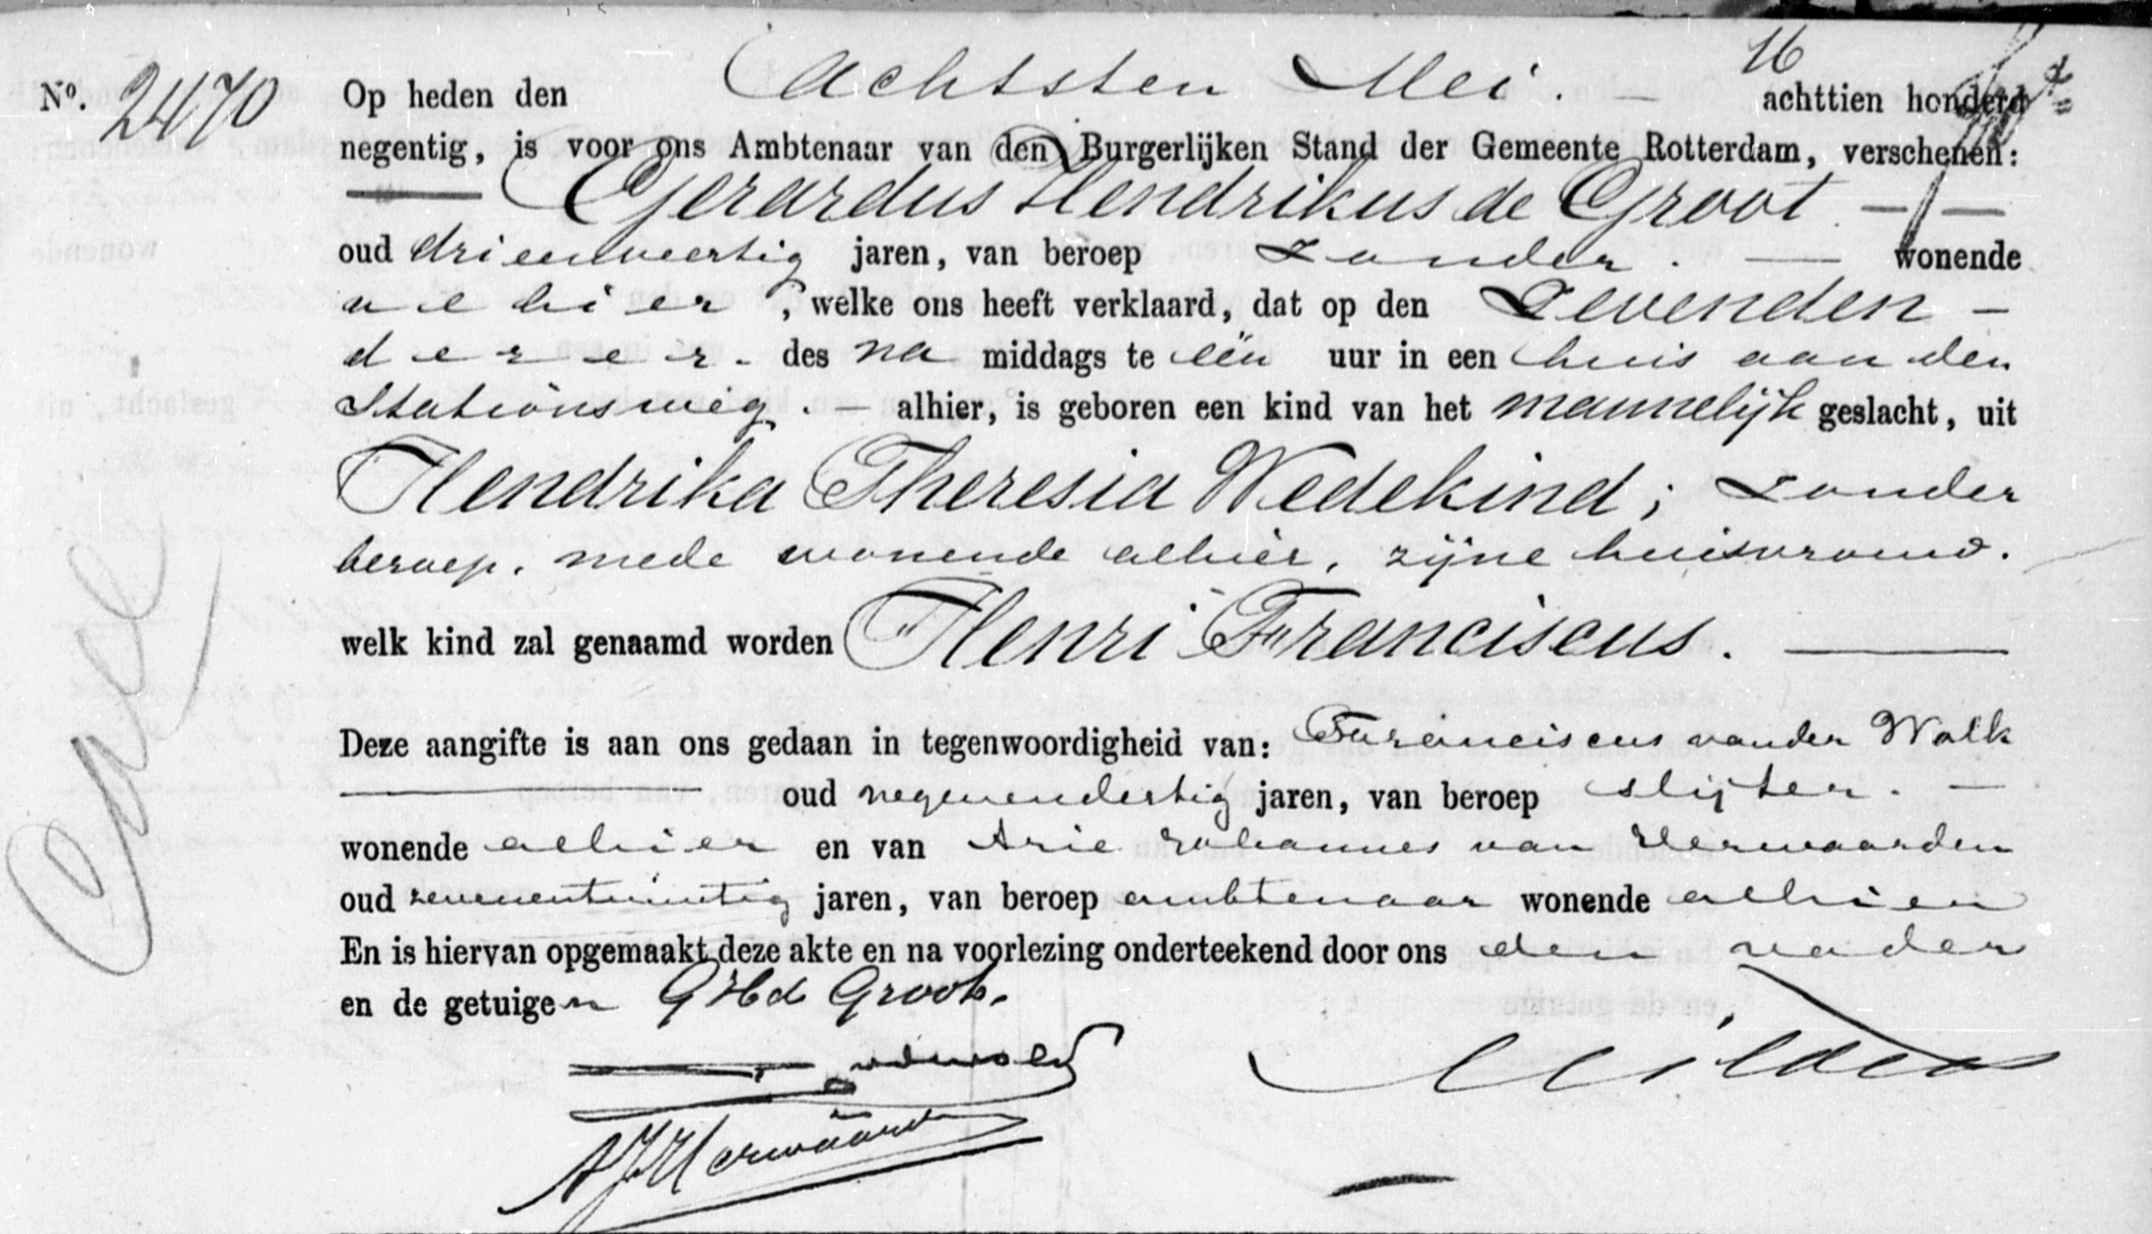 No. 2470 Op heden den Achtsten Mei. 16 achttien honderd
negentig, is voor ons Ambtenaar van den Burgerlijken Stand der Gemeente Rotterdam, verschenen:
Gerardus Hendrikus de Groot
oud drieenveertig jaren, van beroep zonder. wonende
alhier, welke ons heeft verklaard, dat op den Zevenden
dezer. des na middags te één uur in een huis aan den
Stationsweg. alhier, is geboren een kind van het mannelijk geslacht, uit
Hendrika Theresia Wedekind; zonder
beroep, mede wonende alhier, zijne huisvrouw.
welk kind zal genaamd worden "Henri Franciscus".
Deze aangifte is aan ons gedaan in tegenwoordigheid van: Franciscus van der Walk
oud negenendertig jaren, van beroep slijter.
wonende alhier en van Arie Johannes van Herwaarden
oud zevenentwintig jaren, van beroep ambtenaar wonende alhier
En is hiervan opgemaakt deze akte en na voorlezing onderteekend door ons den vader
en de getuigen GHd Groot.
AJHerwaarden